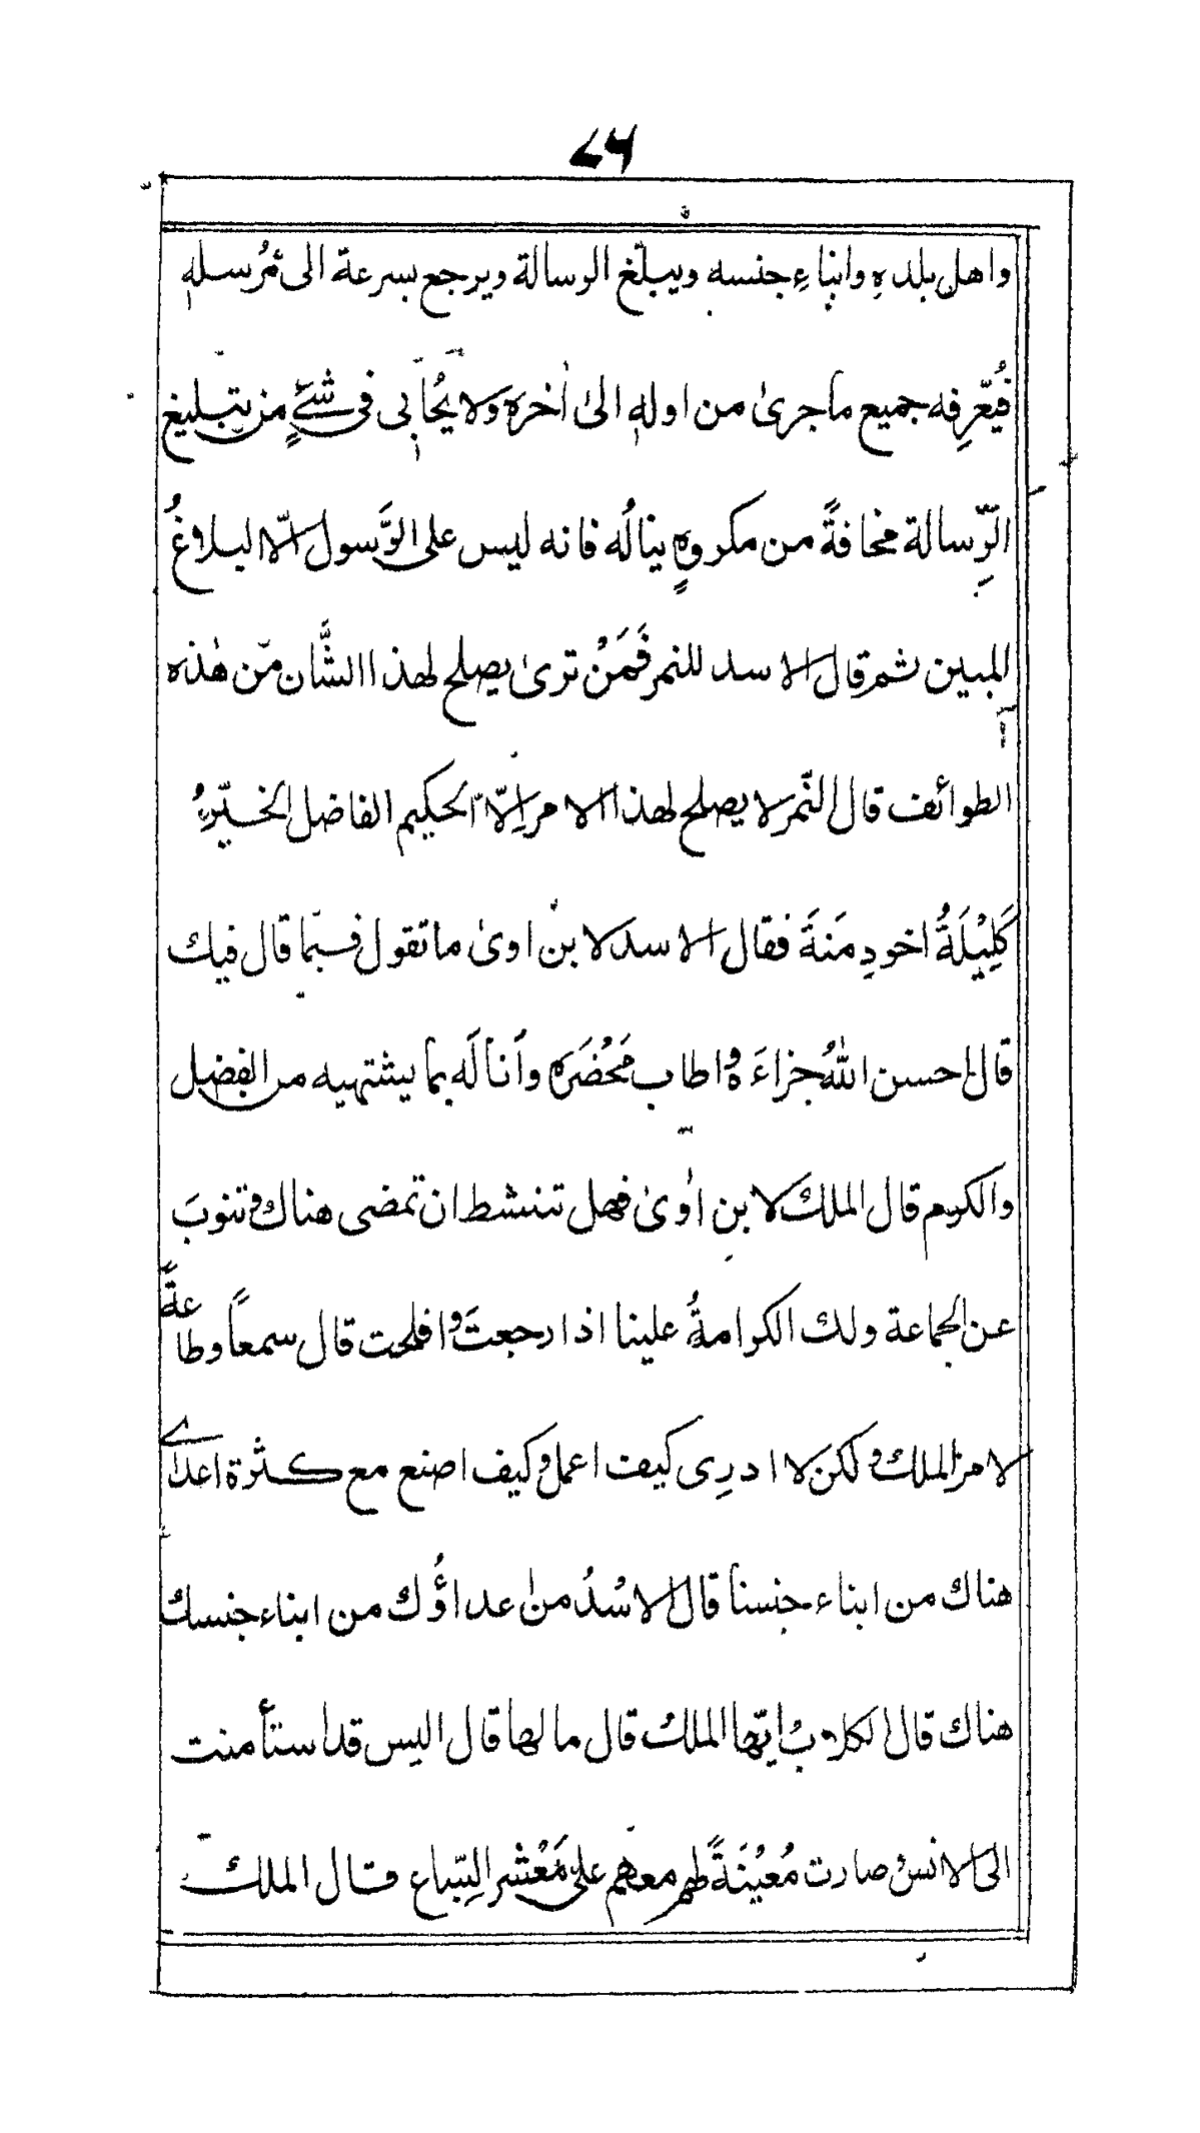 ۷۶
واهل بلدهِ وابناءِ جنسه ويبلّغ الرسالة ويرجع بسرعة الى مُرسله
فيُعّرِفه جميع ماجرىٰ من اوله الىٰ اٰخره وَلا يُحَابى فى شئٍ من تبليغ
الرِّسالة مخافةً من مكروهٍ ينالُه فانه ليس على الرَّسول الّا البلاغُ
المبين ثم قال الاسد للنمر فَمَنْ ترىٰ يصلح لهذا الشَّان مّن هٰذه
الطوائف قال النّمر لا يصلح لهذا الامر اِلّا الحكيم الفاضل الخبيرُ
كَلِيْلَةُ اخو دِمَنةَ فقال الاسد لابن اوىٰ ما تقول فيما قال فيك
قال احسن اللهُ جزاءَهُ واطاب مَحْضَرَه وأنالَه بما يشتهيه من الفضل
والكرم قال الملك لابن اٰوىٰ فهل تنشط ان تمضى هناك وتنوبَ
عن الجماعة ولك الكرامةُ علينا اذا رجعتَ وافلحت قال سمعاً وطاعةً
لامر الملك ولكن لا ادرِى كيف اعمل وكيف اصنع مع كثرة اعدائى
هناك من ابناء جنسنا قال الاسْدُ من اعداؤُك من ابناء جنسك
هناك قال الكلابُ ايّها الملك قال ما لها قال اليس قد استأمنت
الى الانس وصارت مُعِيْنَةً لهم معهم علىٰ مَعْشر السّباع قال الملك